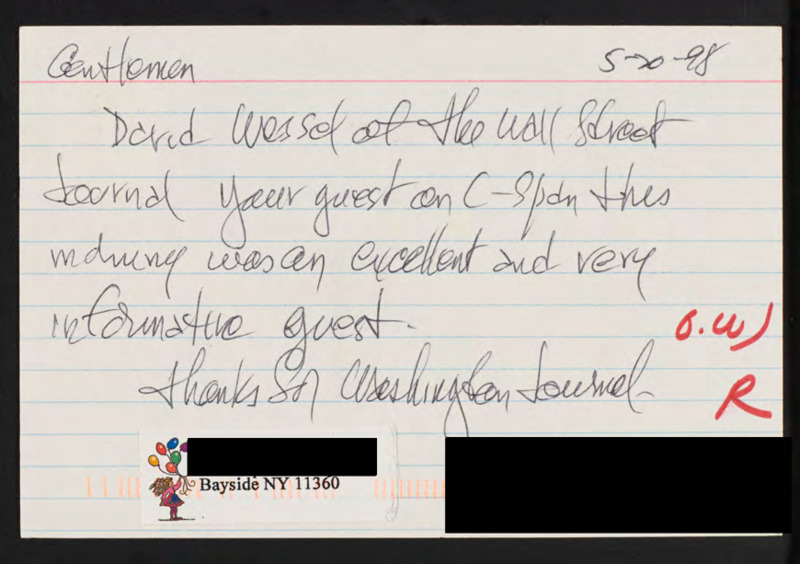 Gentlemen 5-20-98
David Wessel of the Wall Street
Journal your guest on C-Span this
morning was an excellent and very
informative guest.
Thanks for Washington Journal.
R
Bayside NY 11360